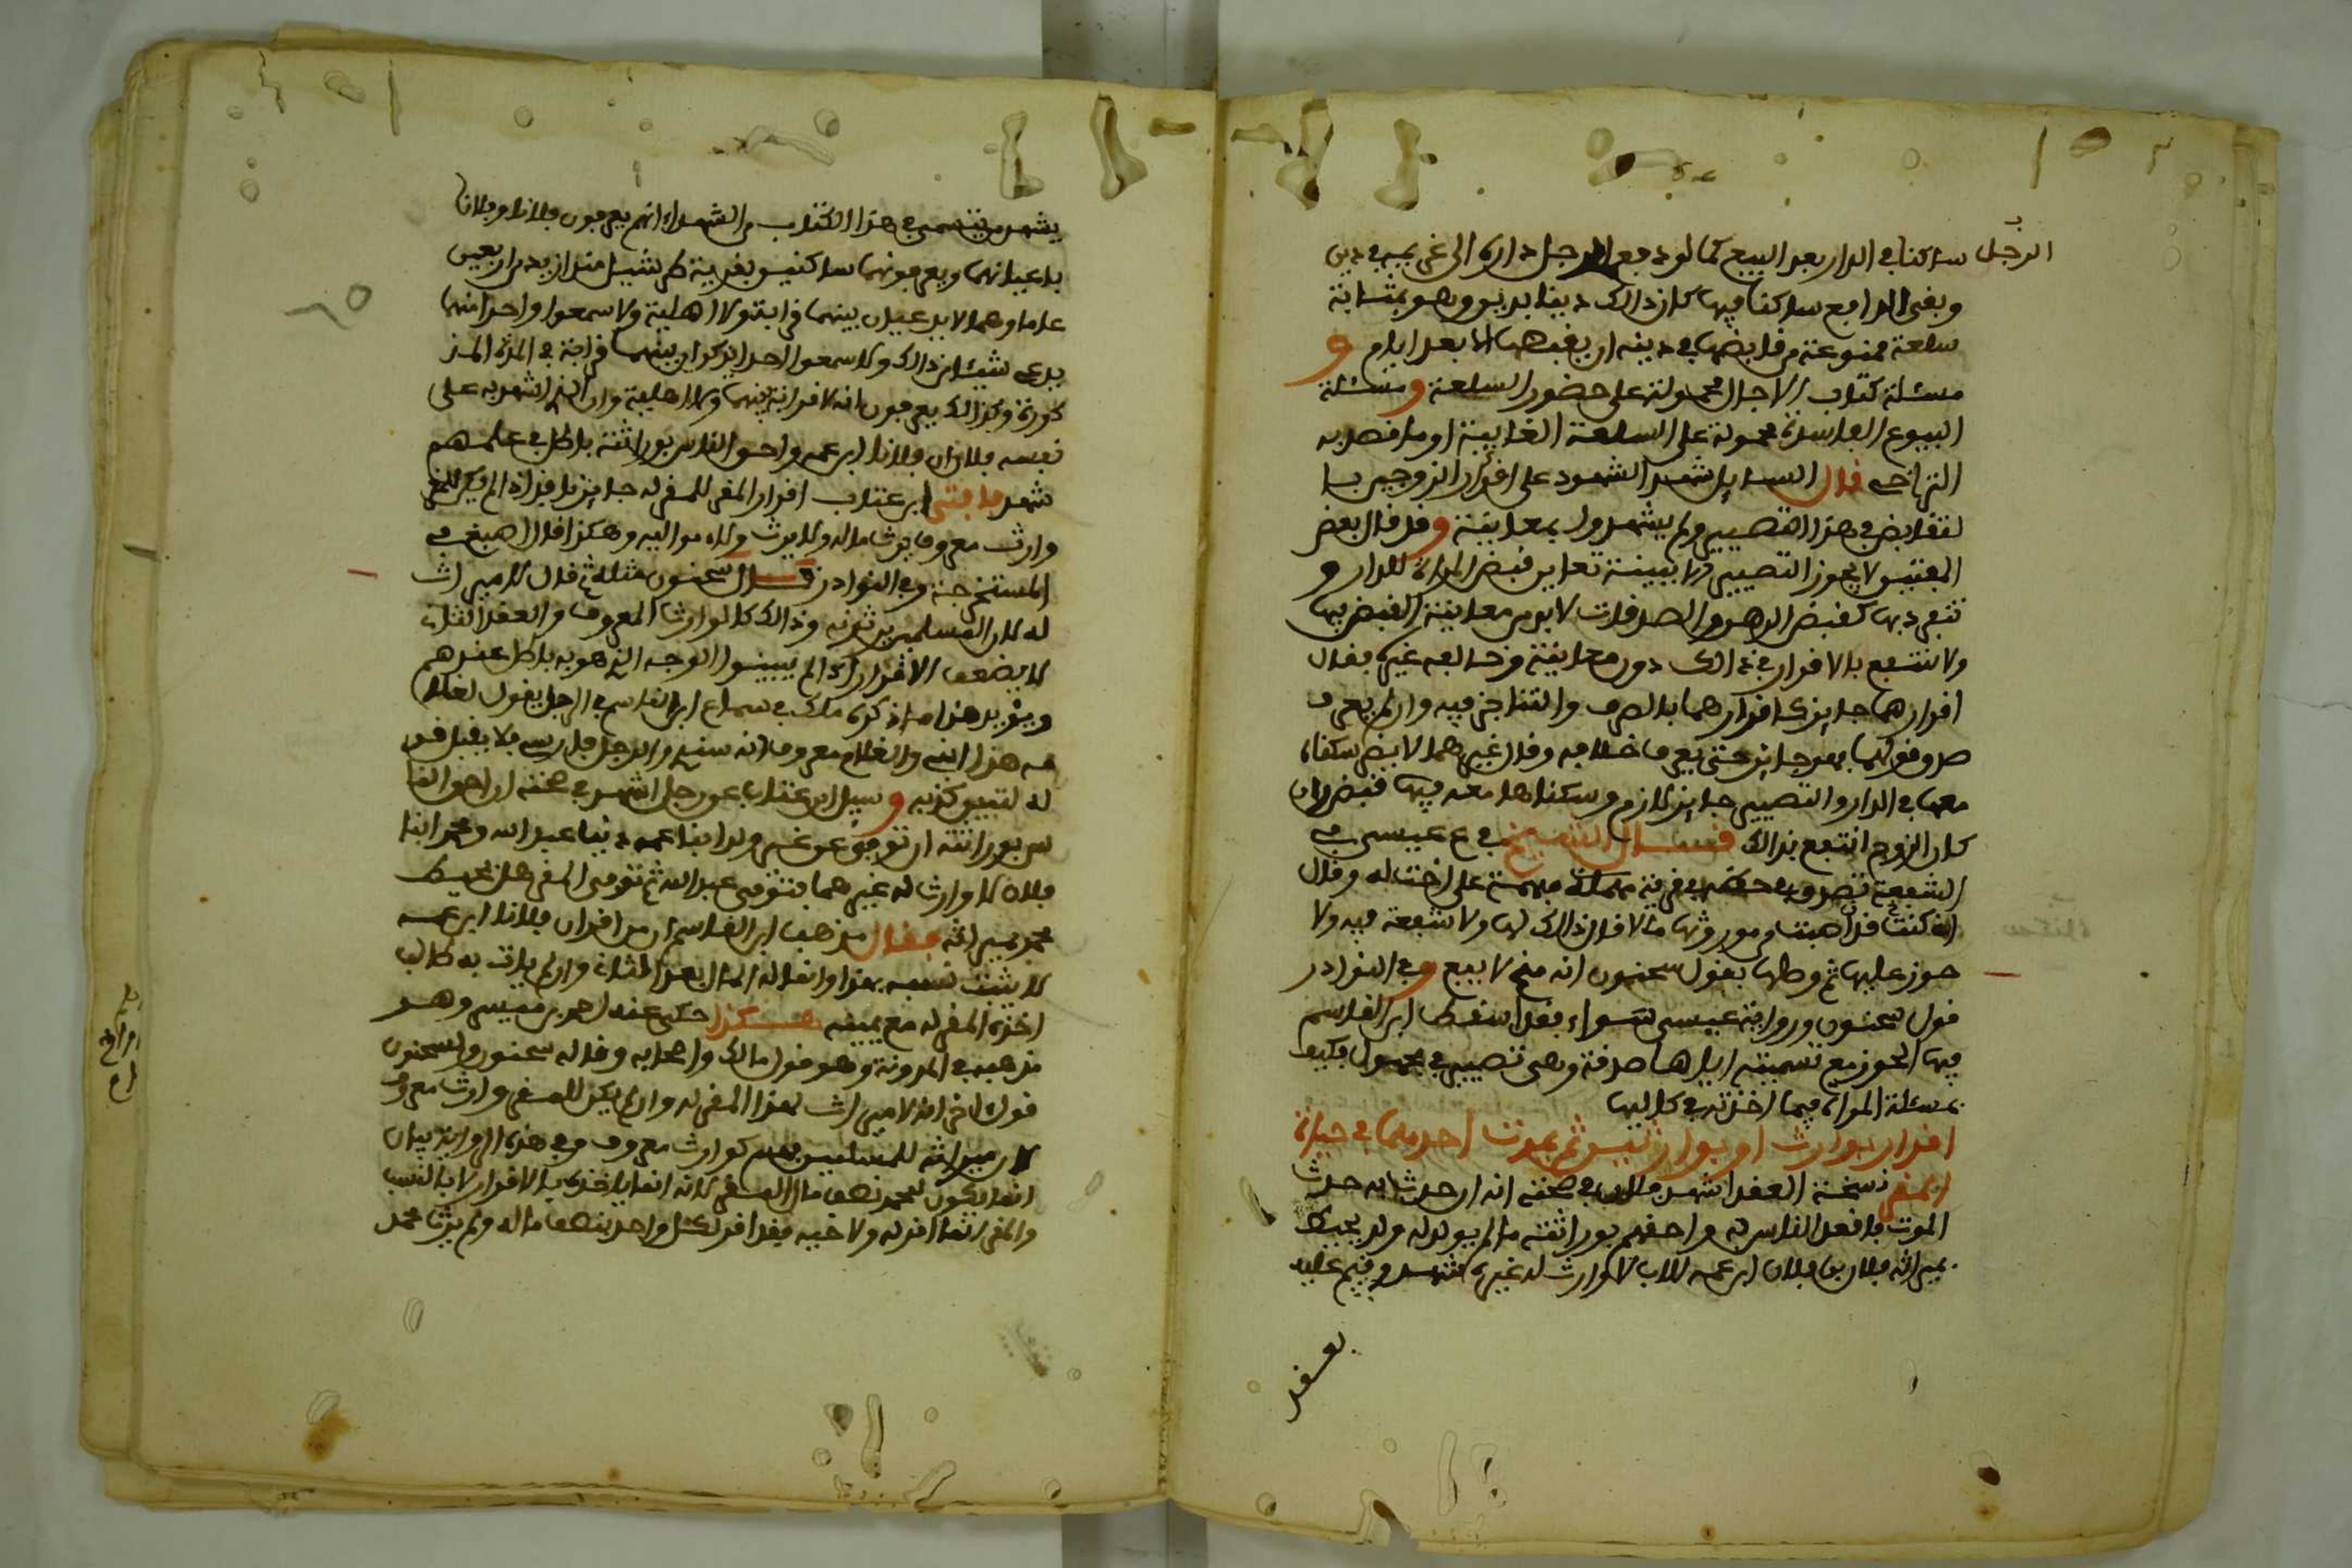 الرجل ساكنا في الدار بعد البيع كما لو دفع الرجل داره الى غريمه في دين
وبقي الدافع ساكنا فيها كان ذالك دينا بدين وهو بمثابة
سلعة ممنوعة من قابضها في دينه ان يقبضها الا بعد ايام و
مسئلة كتاب الاجال محمولة على حضور السلعة و مسئلة
البيوع الفاسدة محمولة على السلعة الغايبة او ما قصد به
التراخي قال السايل شهد الشهود على اقرار الزوجين با
لتقابض في هذا التصيير ولم يشهدوا بمعاينة وقد قال بعض
المفتيين لا يجوز التصيير الا ببينة تعاين قبض المراة للدار و
تنفرد بها كقبض الرهن والصدقات لا بد من معاينة القبض بها
ولا ينتفع بالاقرار في ذالك دون معاينة وخالفه غيره فقال
اقرارهما جايز كاقرارهما بالصرف والتناجز فيه وان لم يعرف
صدق قولهما فهو جايز حتى يعرف خلافه وقال غيرهما لا يضر سكناه
معها في الدار والتصيير جايز لازم وسكناها معه فيها قبض وان
كان الزوج انتفع بذالك قال الشيخ في ع عيسى في
الشفعة تصدق في قرية مبهمة على اخت له وقال
اني كنت قد اصبت من مورثها مالا قال ذالك لها ولا شفعة فيه ولا
حوز عليها ثم وصلها بقول سحنون انه منح لا بيع وفي النوادر
قول سحنون ورواية عيسى سواء فقد اسقط ابن القاسم
فيها الحوز مع تسميته اياها صدقة وهي تصيير في مجهول فكيف
بمسئلة المراة فيما اخذته في كاليها
اقرار بوارث او بوارثين ثم يموت احدهما في حياة
المقر نسخة العقد اشهد فلان في صحته انه ان حدث به حدث
الموت فاقعد الناس به واحقهم بوراثته ما لم يولد له ولد يحيط
بميراثه فلان بن فلان ابن عمه للاب لا وارث له غيره شهد وفيهم عليه
بعقد
يشهد من يتسمى في هذا الكتاب من الشهداء انهم يعرفون فلانا وفلانا
باعيانهما ويعرفونهما ساكنين بقرية طرشيل منذ ازيد من اربعين
عاما وهما لا يدعيان بينهما قرابة ولا اهلية ولا سمعوا واحدا منهما
يدعي شيئا من ذالك ولا سمعوا احدا يذكر ان بينهما قرابة في المدة المذ
كورة وكذالك يعرفون انه لا قرابة بينهما ولا اهلية وان الذي اشهد به على
نفسه فلان ان فلانا ابن عمه واحق الناس بوراثته باطل في علمهم
شهد فافتى ابن عتاب اقرار المقر للمقر له جايز نافذ اذا لم يكن للمقر
وارث معروف يرث ماله ولا يرث ولاء مواليه وهكذا قال اصبغ في
المستخرجة وفي النوادر قال سحنون مثله ثم قال لا ميراث
له لان المسلمين يرثونه وذالك كالوارث المعروف والعقد الثاني
لا يضعف الاقرار اذا لم يبينوا الوجه الذي هو به باطل عندهم
ويؤيد هذا ما ذكره مالك في سماع ابن القاسم في الرجل يقول لغلا
مه هذا ابني والغلام معروف انه سندي والرجل فارسي فلا يقبل قو
له لتبين كذبه و سيل ابن عتاب عن رجل اشهد في صحته ان احق النا
س بوراثته ان توفي عن غير ولد ابنا عمه دنيا عبد الله ومحمد ابنا
فلان لا وارث له غيرهما فتوفي عبد الله ثم توفي المقر هل يحيط
محمد بميراثه فقال مذهب ابن القاسم ان من اقر ان فلانا ابن عمه
لا يثبت نسبه بهذا وانما له المال بعد التأني وان لم يات به طالب
اخذه المقر له مع يمينه هكذا حكى عنه احمد بن ميسر وهو
مذهبه في المدونة وهو قول مالك واصحابه وقاله سحنون ولسحنون
قول اخر انه لا ميراث لهذا المقر له وان لم يكن للمقر وارث معروف
لان ميراثه للمسلمين فهم كوارث معروف وفي هذه الرواية بيان
انما يكون لمحمد نصف مال المقر لانه انما ياخذه بالاقرار لا بالنسب
والمقر انما اقر له ولاخيه فقد اقر لكل واحد بنصف ماله ولم يرث محمد